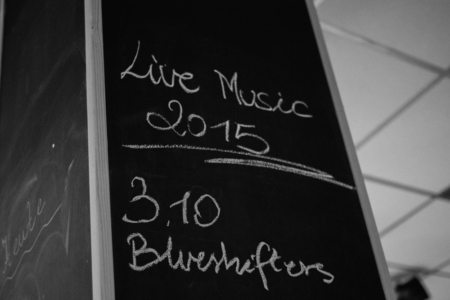 Live Music
2015
3.10
Blueshifters
Heute